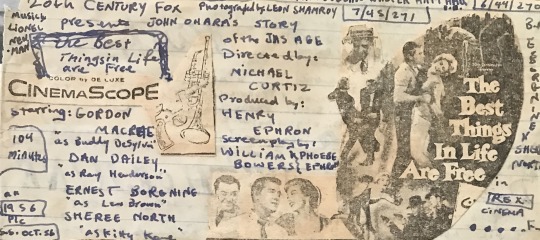 20th CENTURY FOX Photographed by LEON SHAMROY
7/45/271
16/49/270
Music
LIONEL
NEWMAN
present JOHN OHARA'S STORY
of the JAS AGE
the Best
Things in Life
are Free
COLOR by DE LUXE
CINEMASCOPE
Directed by:
MICHAEL
CURTIZ
Produced by:
HENRY
EPHRON
Screenplay by:
WILLIAM & PHOEBE
BOWERS EPHRON
starring: GORDON
MACRAE
as Buddy DeSylva
DAN DAILEY
"as Ray Henderson"
ERNEST BORGNINE
"as Lew Brown"
SHEREE NORTH
"as Kitty Kane"
104
MINUTES
1956
PIC
OCT. 56
The
Best
Things
In Life
Are Free
in
REX
CINEMA